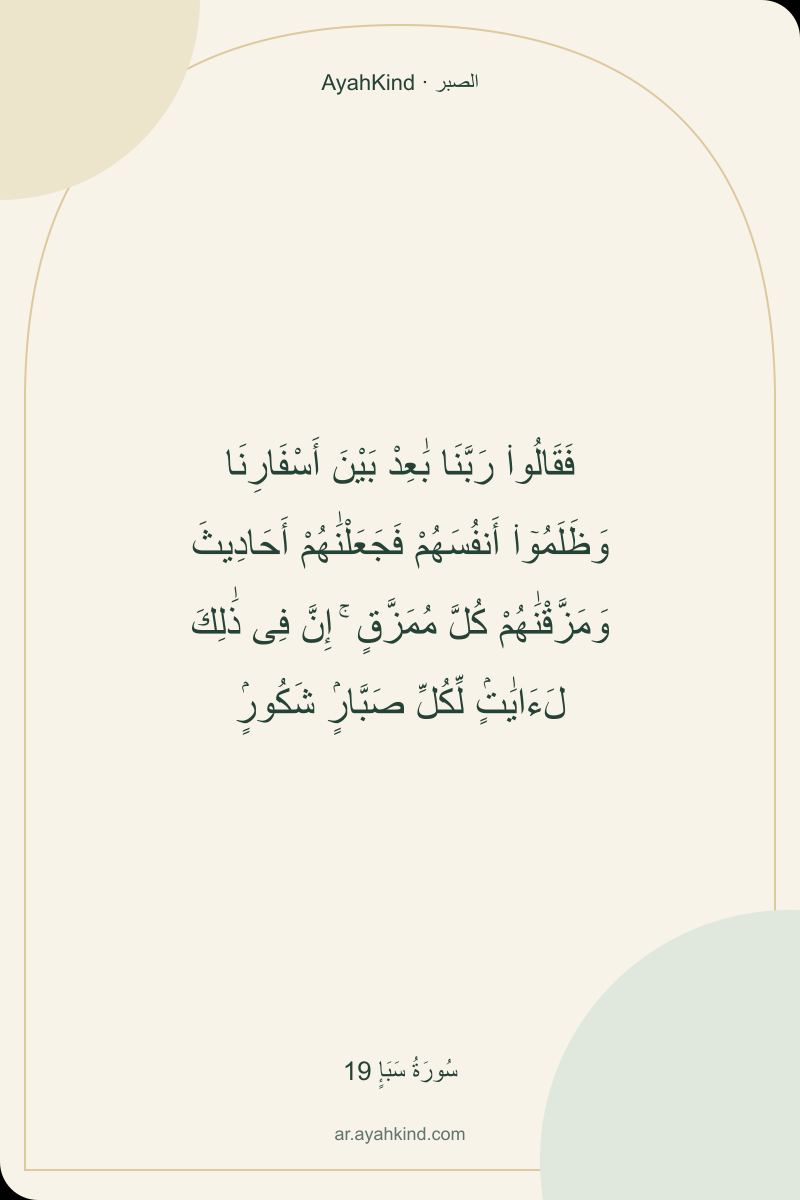 AyahKind · الصبر
فَقَالُوا۟ رَبَّنَا بَٰعِدْ بَيْنَ أَسْفَارِنَا
وَظَلَمُوٓا۟ أَنفُسَهُمْ فَجَعَلْنَٰهُمْ أَحَادِيثَ
وَمَزَّقْنَٰهُمْ كُلَّ مُمَزَّقٍ ۚ إِنَّ فِى ذَٰلِكَ
لَءَايَٰتٍۢ لِّكُلِّ صَبَّارٍۢ شَكُورٍۢ
سُورَةُ سَبَإٍ 19
ar.ayahkind.com